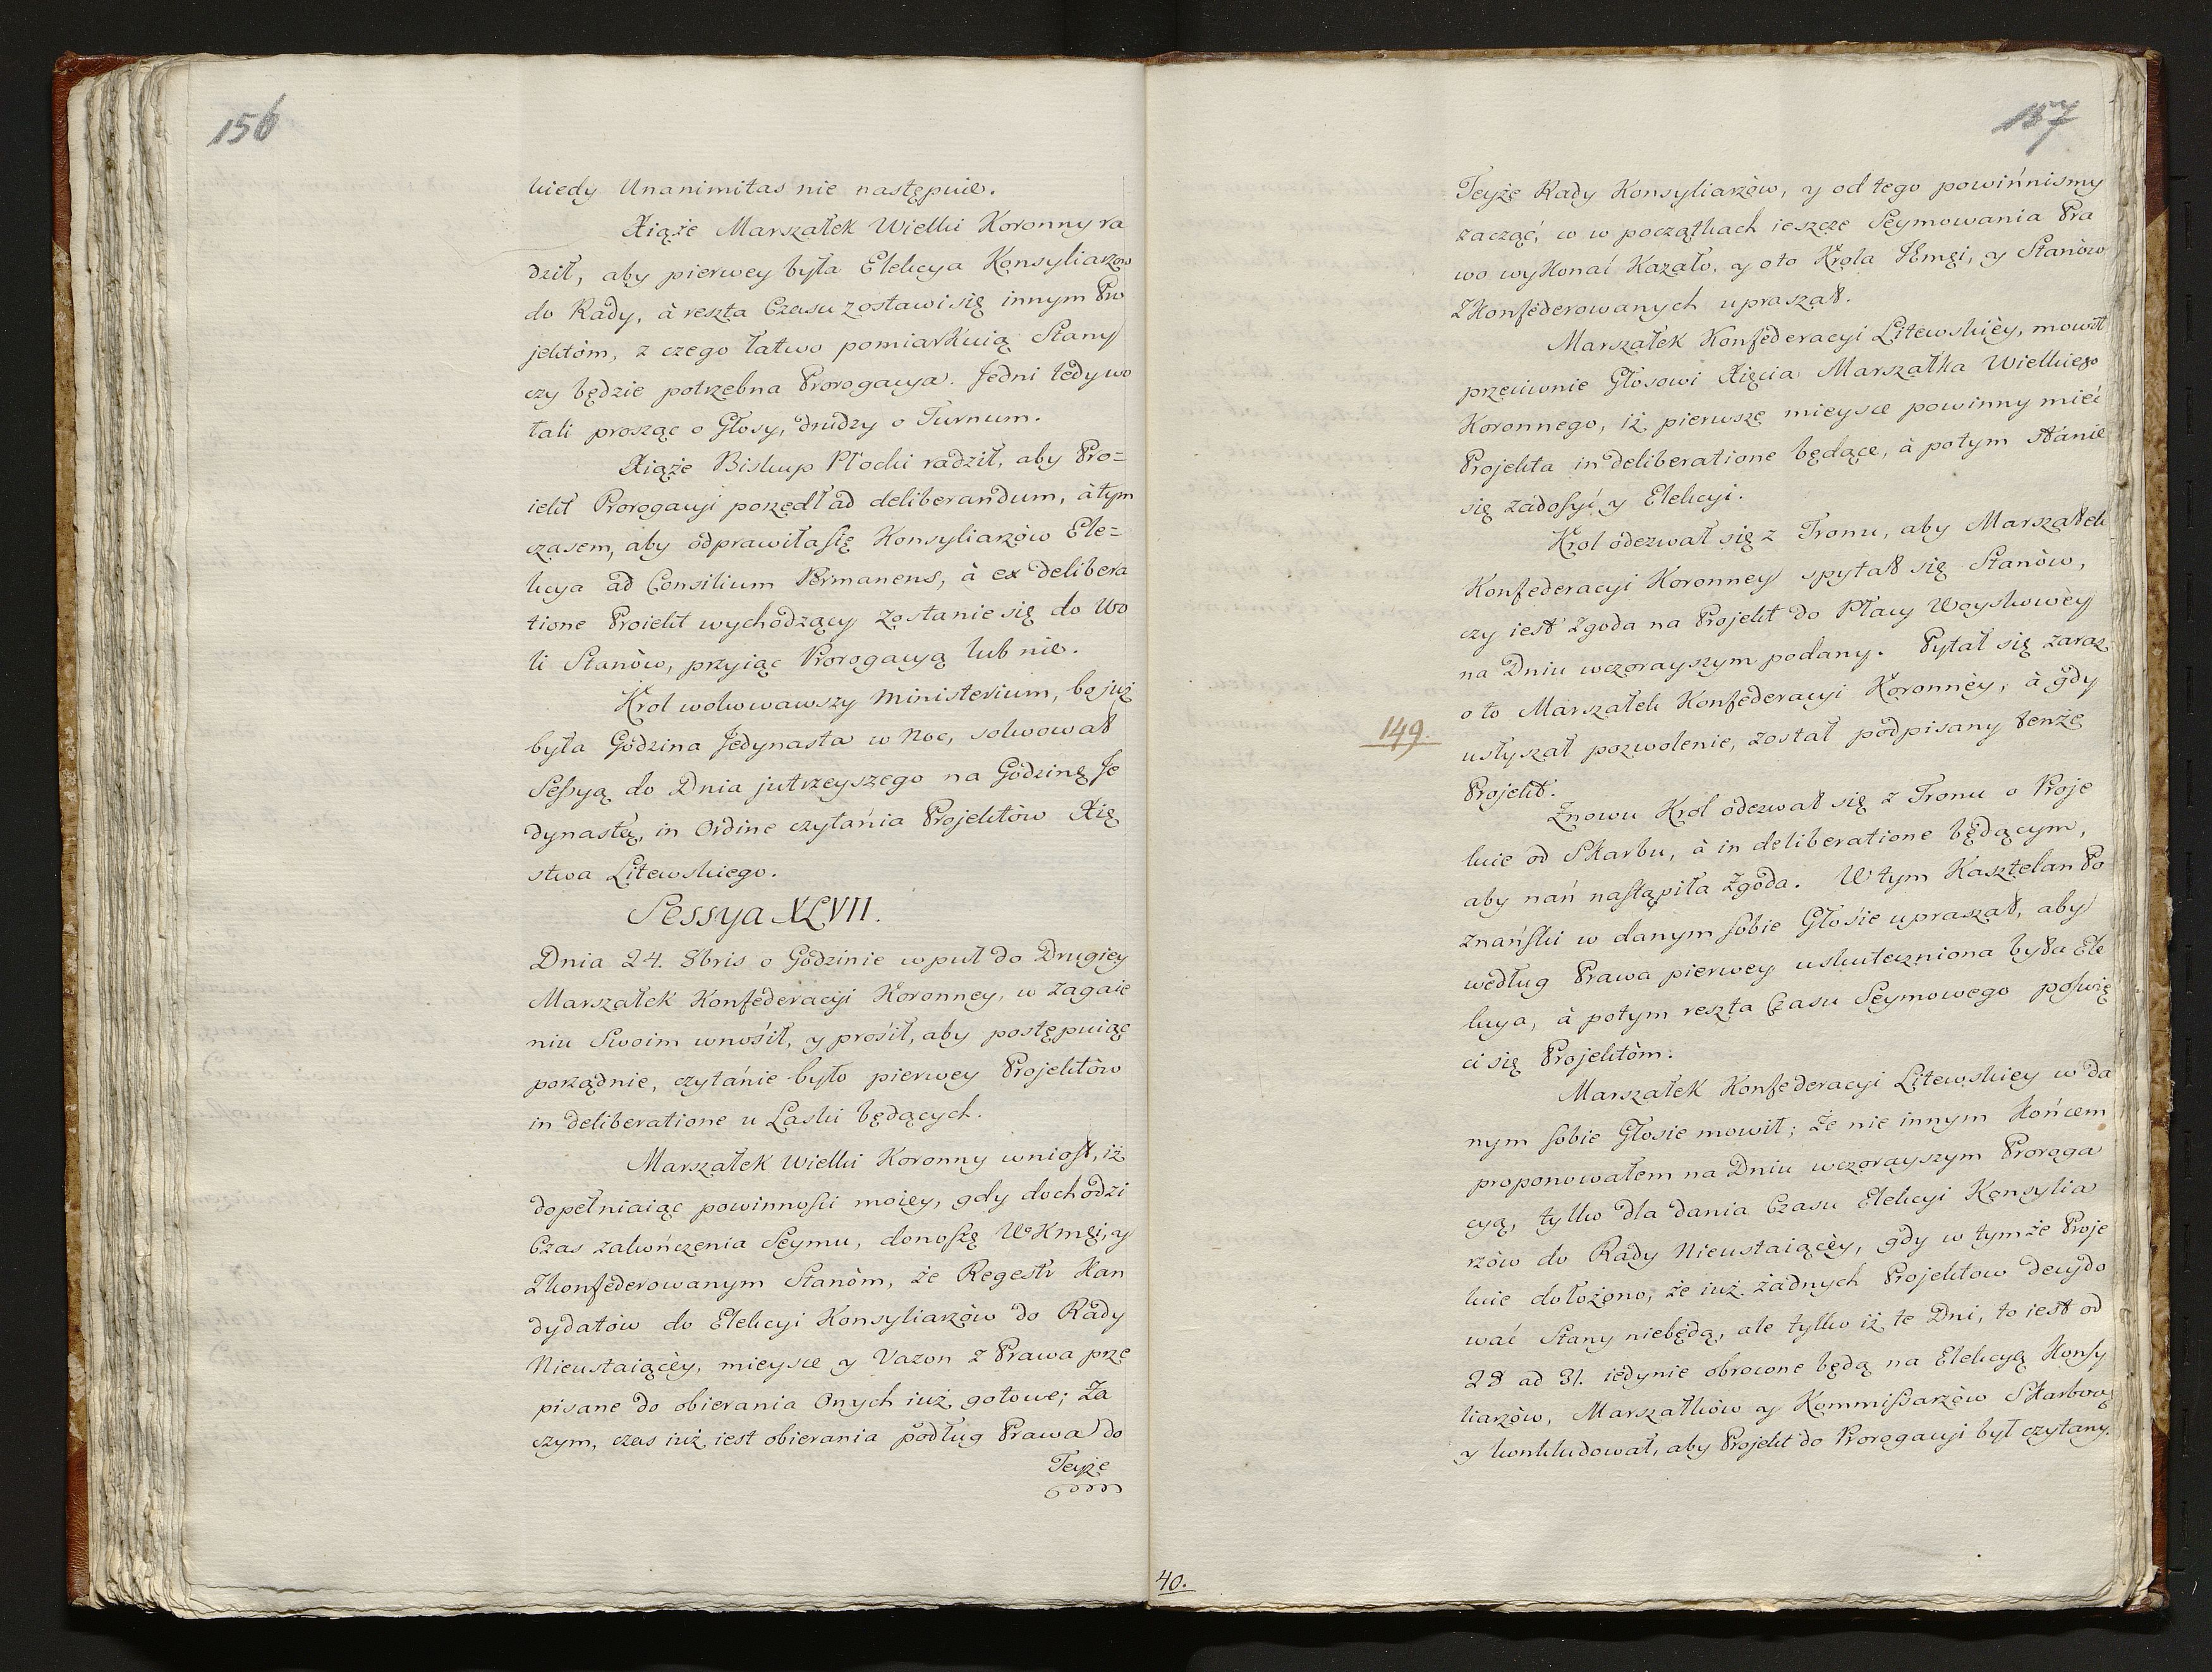 156
kiedy Unanimitas nie następuie.
Xiąże Marszałek Wielki Koronny ra
dził, aby pierwey była Elekcya Konsyliarzow
do Rady, à reszta Czasu zostawi się innym Pro
jektòm, z czego łatwo pomiarkuią Stany
czy będzie potrzebna Prorogacya. Jedni tedy wo
łali prosząc o Głosy, drudzy o Turnum.
Xiąże Biskup Płocki radził, aby Pro=
iekt Prorogacyi poszedł ad deliberandum, à tym
czasem, aby odprawiła się Konsyliarzòw Ele=
kcya ad Consilium Permanens, à ex delibera
tione Proiekt wychodzący zostanie się do Wo
li Stanòw, przyiąc Prorogacyą lub nie.
Krol wokowawszy Ministerium, bo już
była Godzina Jedynasta w Noc, solwował
Sessyą do Dnia jutrzeyszego na Godzinę Je
dynastą, in Ordine czytania Projektòw Xię
stwa Litewskiego.
Sessya XLVII.
Dnia 24. 8bris o Godzinie w puł do Drugiey
Marszałek Konfederacyi Koronney, w Zagaie
niu Swoim wnosił, y prosił, aby postępuiąc
porządnie, czytanie było pierwey Projektòw
in deliberatione u Laski będących.
Marszałek Wielki Koronny wniosł, iż
dopełniaiąc powinnosci moiey, gdy dochodzi
Czas zakończenia Seymu, donoszę WKmci, y
Zkonfederowanym Stanòm, że Regestr Kan
dydatòw do Elekcyi Konsyliarzòw do Rady
Nieustaiącèy, mieysce y Vazon z Prawa prze
pisane do obierania Onych iuż gotowe; Za
czym, czas iuż iest obierania podług Prawa do
Teyże
157
Teyże Rady Konsyliarzòw, y od tego powińnismy
zacząć, co w początkach ieszcze Seymowania Pra
wo wykonać Kazało, y oto Krola Jemci, y Stanòw
Zkonfederowanych upraszał.
Marszałek Konfederacyi Litewskièy, mowił
przeciwnie Głosowi Xięcia Marszałka Wielkiego
Koronnego, iż pierwsze mieysce powinny mieć
Projekta in deliberatione będące, à potym stanie
się zadosyć y Elekcyi.
Krol odezwał się z Tronu, aby Marszałek
Konfederacyi Koronney spytał się Stanòw,
czy iest Zgoda na Projekt do Płacy Woyskowèy
na Dniu wczorayszym podany. Pytał się zaraz
o to Marszałek Konfederacyi Koronnèy, à gdy
149.
usłyszał pozwolenie, został podpisany tenże
Projekt.
Znowu Krol odezwał się z Tronu o Proje
kcie od Skarbu, à in deliberatione będącym,
aby nań nastąpiła Zgoda. W tym Kasztelan Po
znański w danym sobie Głosie upraszał, aby
według Prawa pierwey uskuteczniona była Ele
kcya, à potym reszta Czasu Seymowego poswię
ci się Projektòm.
Marszałek Konfederacyi Litewskiey w da
nym sobie Głosie mowił; Że nie innym Końcem
proponowałem na Dniu wczorayszym Proroga
cyą, tylko dla dania Czasu Elekcyi Konsylia
rzòw do Rady Nieustaiącèy, gdy w tymże Proje
kcie dołożono, że iuż żadnych Projektow decydo
wać Stany niebędą, ale tylko iż te Dni, to iest od
28 ad 31. iedynie obrocone będą na Elekcyą Konsy
liarzòw, Marszałkòw y Kommissarzòw Skarbow:
y konkludował, aby Projekt do Prorogacyi był czytany.
40.